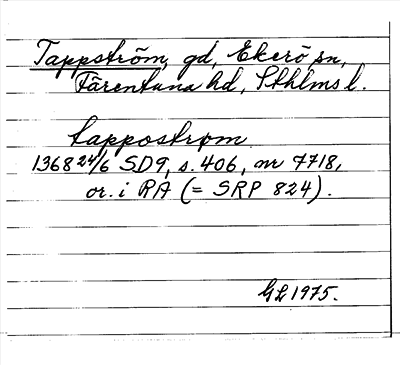 Tappström, gd, Ekerö sn,
Färentuna hd, Sthlms l.
tappostrøm
1368 24/6 SD9, s. 406, nr 7718,
or. i RA (= SRP 824).
GL 1975.